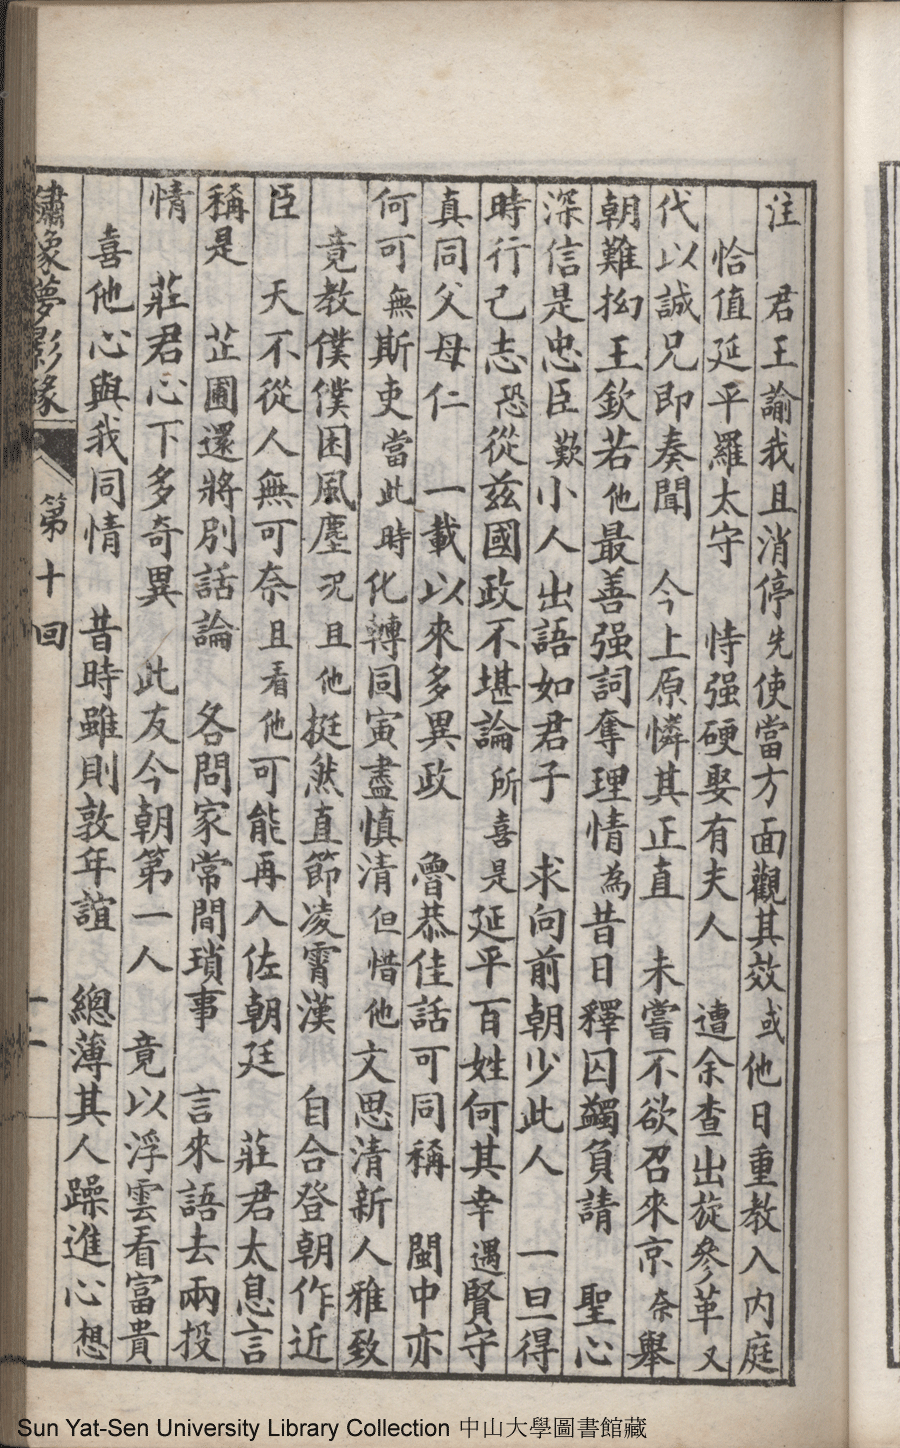 注 君王諭我且消停先使當方面觀其效或他日重教入內庭
恰值延平羅太守 恃强硬娶有夫人 遭余查出旋參革又
代以誠兄即奏聞 今上原憐其正直 未嘗不欲召來京奈舉
朝難拗王欽若他最善强詞奪理情為昔日釋囚蠲負請 聖心
深信是忠臣歎小人出語如君子 求向前朝少此人 一旦得
時行己志恐從茲國政不堪論所喜是延平百姓何其幸遇賢守
真同父母仁 一載以來多異政 魯恭佳話可同稱 閩中亦
何可無斯吏當此時化轉同寅盡慎清但惜他文思清新人雅致
竟教僕僕困風塵況且他挺然直節凌霄漢 自合登朝作近
臣 天不從人無可奈且看他可能再入佐朝廷 莊君太息言
稱是 芷圃還將別話論 各問家常間瑣事 言來語去兩投
情 莊君心下多奇異 此友今朝第一人 竟以浮雲看富貴
喜他心與我同情 昔時雖則敦年誼 總薄其人躁進心想
繡像夢影緣 第十回 十二
Sun Yat-Sen University Library Collection 中山大學圖書館藏